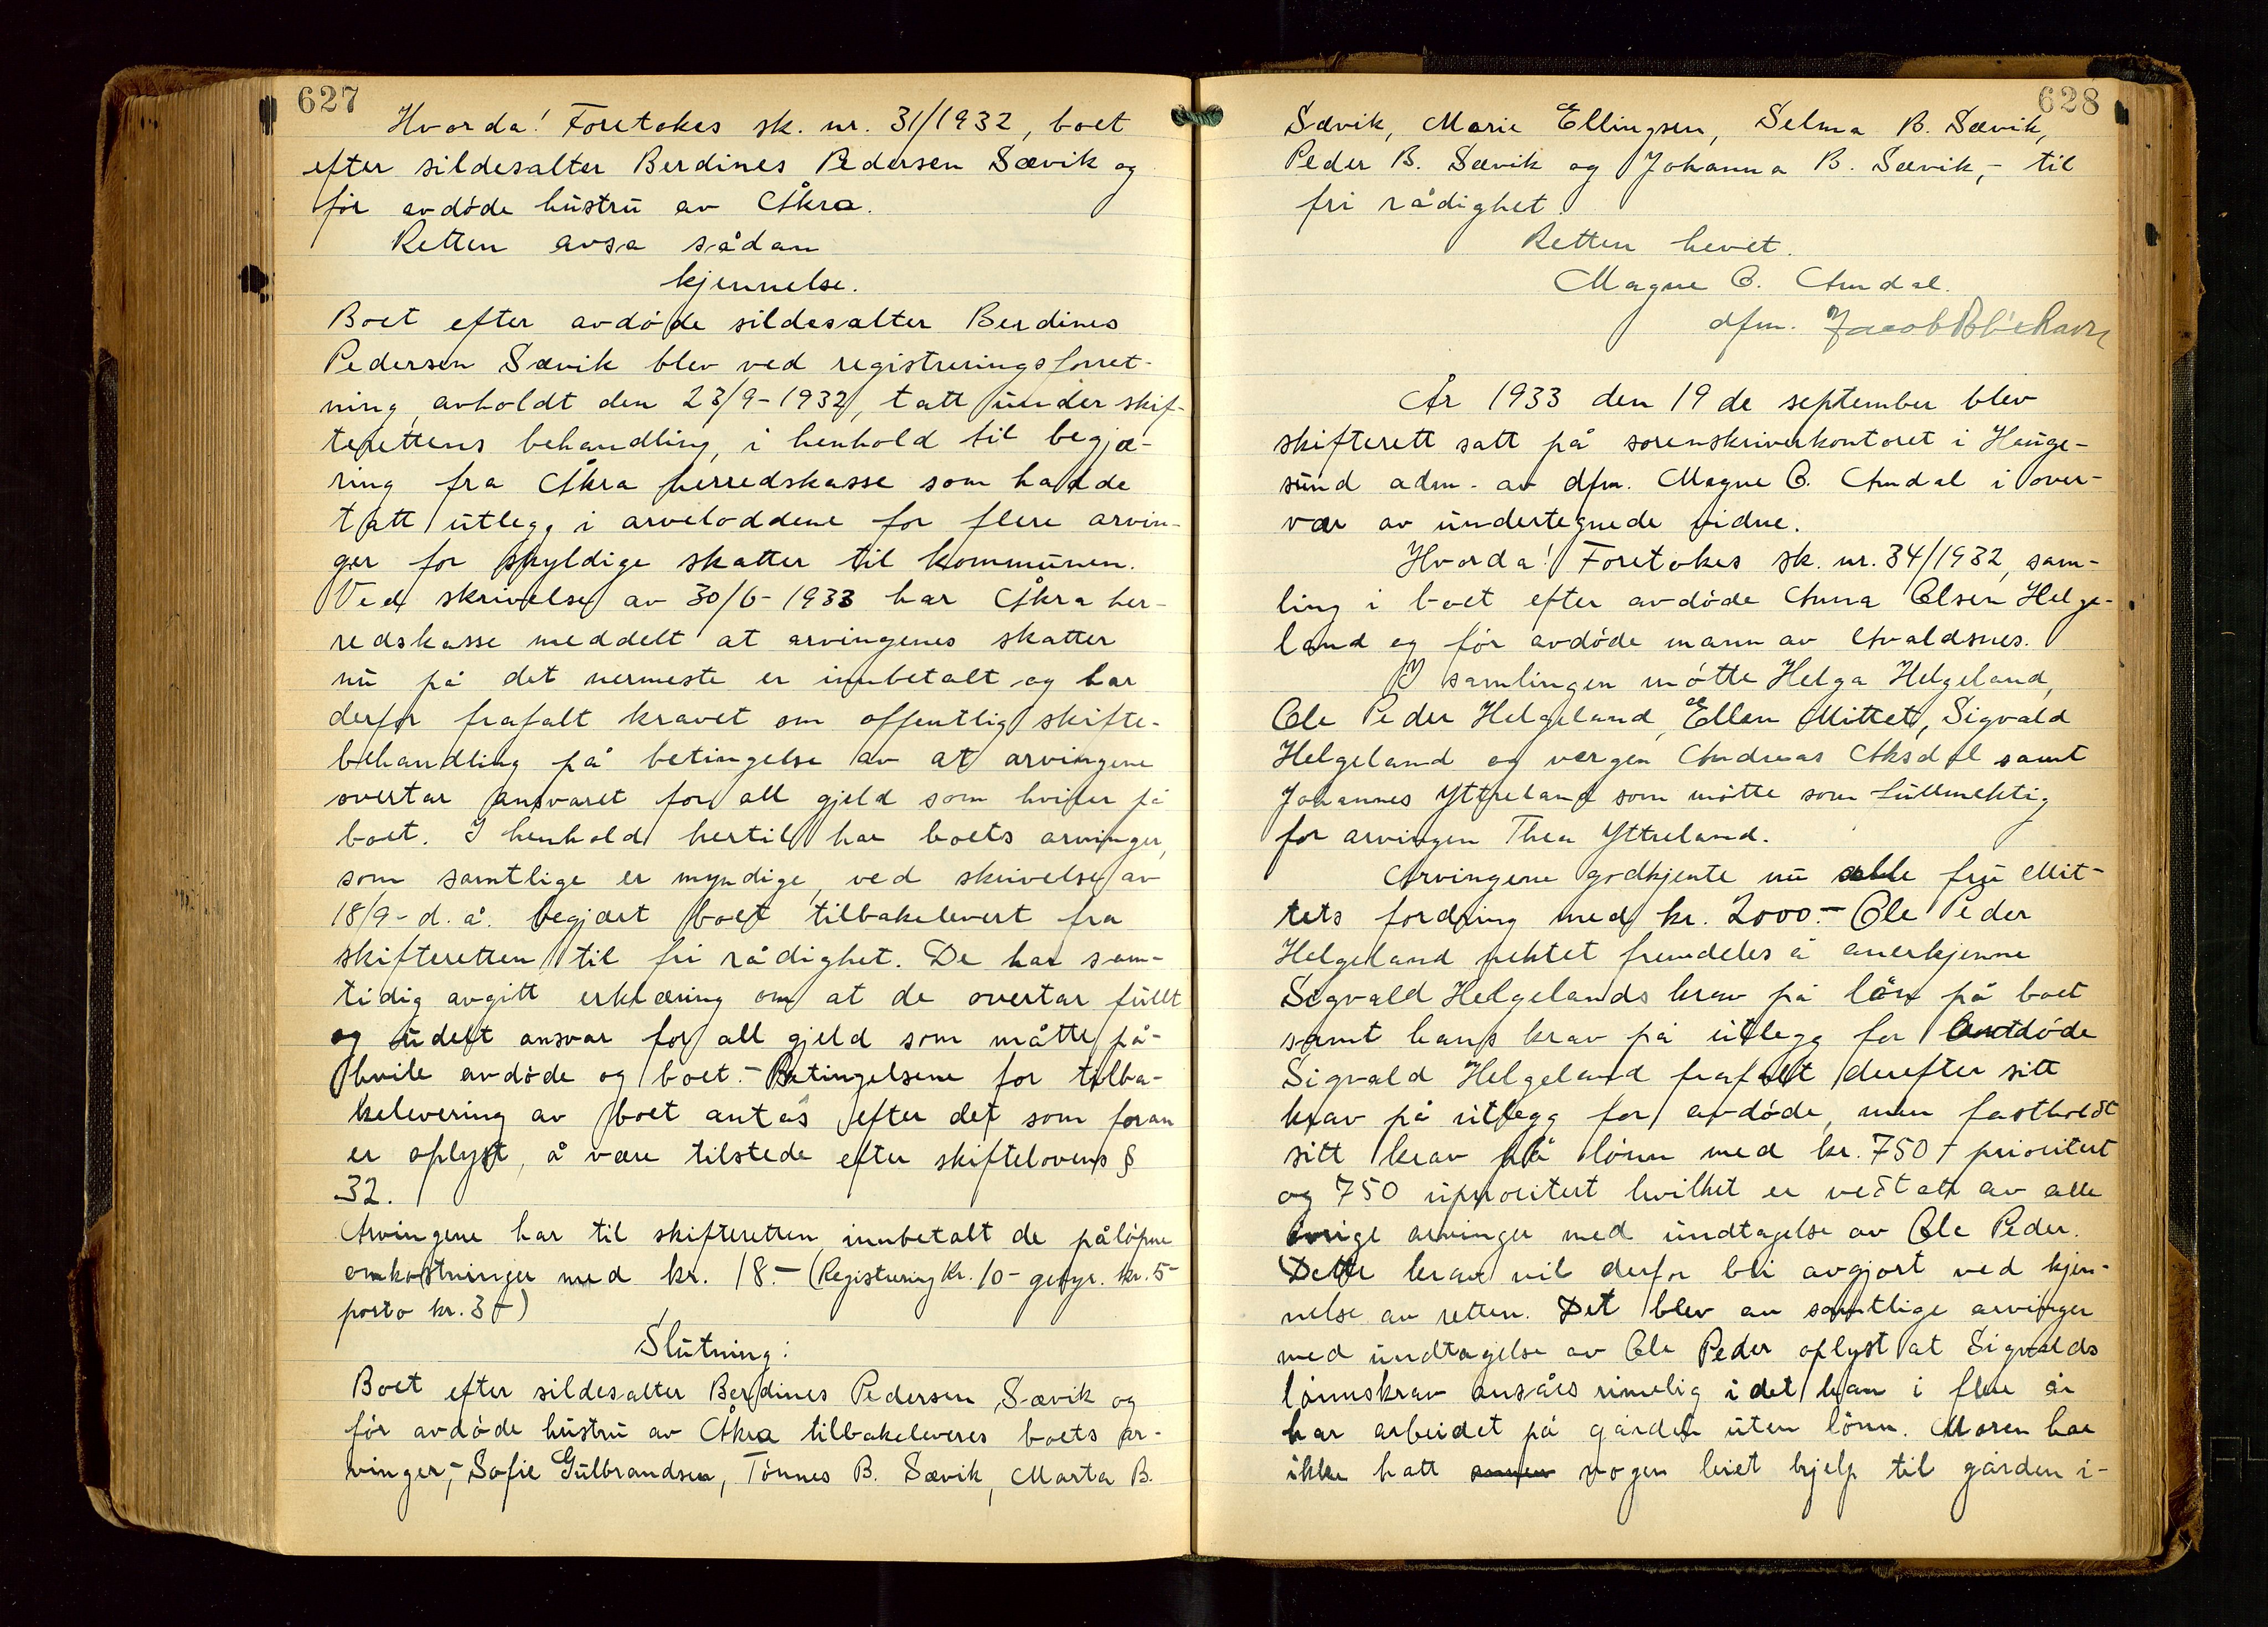 627
Hvorda! Foretokes sk. nr. 31/1932, boet
efter sildesalter Berdines Pedersen Sævik og
før avdøde hustru av Åkra.
Retten avsa sådan
kjennelse.
Boet efter avdøde sildesalter Berdines
Pedersen Sævik blev ved registreringsforret-
ning, avholdt den 23/9-1932, tatt under skif-
terettens behandling, i henhold til begjæ-
ring fra Åkra herredskasse som hadde
tatt utlegg i arveloddene for flere arvin-
ger for skyldige skatter til kommunen.
Ved skrivelse av 30/6-1933 har Åkra her-
redskasse meddelt at arvingenes skatter
nu på det nermeste er innbetalt og har
derfor frafalt kravet om offentlig skifte-
behandling på betingelse av at arvingene
overtar ansvaret for all gjeld som hviler på
boet. I henhold hertil har boets arvinger,
som samtlige er myndige, ved skrivelse av
18/9- d. å. begjært boet tilbakelevert fra
skifteretten til fri rådighet. De har sam-
tidig avgitt erklæring om at de overtar fullt
og udelt ansvar for all gjeld som måtte på-
hvile avdøde og boet.- Betingelsene for tilba-
kelevering av boet antas efter det som foran
er oplyst, å være tilstede efter skiftelovens §
32.
Arvingene har til skifteretten innbetalt de påløpne
omkostninger med kr. 18.- (Registrering Kr. 10- gebyr. kr. 5-
porto kr. 3-)
Slutning:
Boet efter sildesalter Berdines Pedersen Sævik og
før avdøde hustru av Åkra tilbakeleveres boets ar-
vinger,- Sofie Gulbrandsen, Tønnes B. Sævik, Marta B.
628
Sævik, Marie Ellingsen, Selma B. Sævik,
Peder B. Sævik og Johanna B. Sævik,- til
fri rådighet.
Retten hevet.
Magne C. Amdal.
dfm. Jacob
År 1933 den 19 de september blev
skifterett satt på sorenskriverkontoret i Hauge-
sund adm. av dfm. Magne C. Amdal i over-
vær av undertegnede vidne.
Hvorda! Foretokes sk. nr. 34/1932, sam-
ling i boet efter avdøde Anna Olsen Helge-
land og før avdøde mann av Avaldsnes.
I samlingen møtte Helga Helgeland,
Ole Peder Helgeland, Ellen Mittet, Sigvald
Helgeland og vergen Andreas Aksdal samt
Johannes Yttreland som møtte som fullmektig
for arvingen Thea Yttreland.
Arvingene godkjente nu alle fru Mit-
tets fordring med kr. 2000.- Ole Peder
Helgeland nektet fremdeles å anerkjenne
Sigvald Helgelands krav på lön på boet
samt hans krav på utlegg for avdøde
Sigvald Helgeland frafalt derefter sitt
krav på utlegg for avdøde, men fastholdt
sitt krav på lønn med kr. 750 + prioritert
og 750 uprioritert hvilket er vedtatt av alle
øvrige arvinger med undtagelse av Ole Peder.
Dette krav vil derfor bli avgjort ved kjen-
nelse av retten. Det blev av samtlige arvinger
med undtagelse av Ole Peder oplyst at Sigvalds
lønnskrav ansåes rimelig idet han i flere år
har arbeidet på gården uten lønn. Moren har
ikke hatt nogen leiet hjelp til gården i-